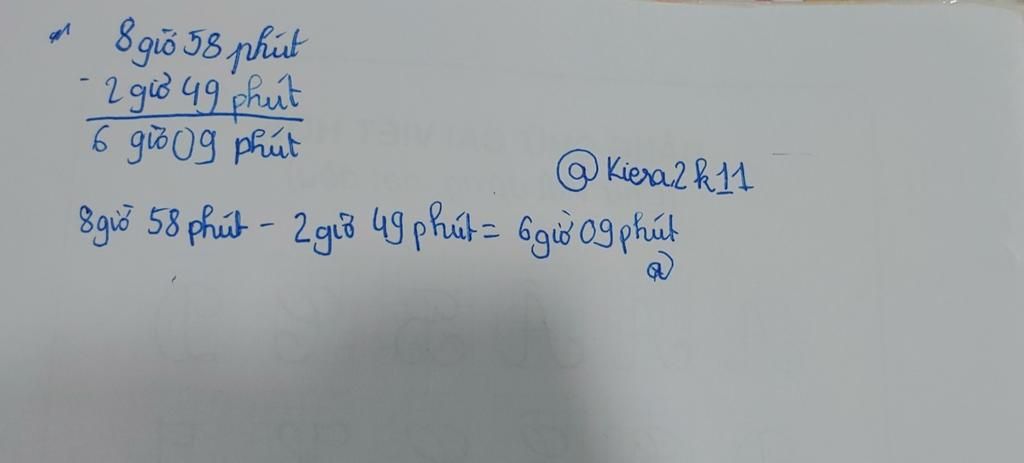 8 giờ 58 phút
- 2 giờ 49 phút
6 giờ 09 phút
@Kiera2k11
8 giờ 58 phút - 2 giờ 49 phút = 6 giờ 09 phút
@